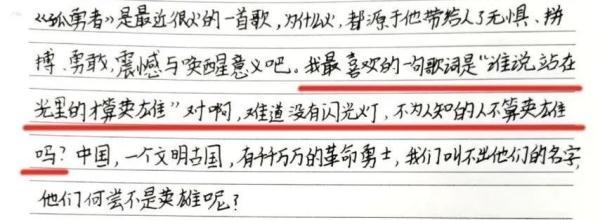 《孤勇者》是最近很火的一首歌,为什么火,都源于他带给人了无惧、拼
搏、勇敢,震撼与唤醒意义吧。我最喜欢的一句歌词是“谁说站在
光里的才算英雄”对啊,难道没有闪光灯,不为人知的人不算英雄
吗?中国,一个文明古国,有千千万万的革命勇士,我们叫不出他们的名字,
他们何尝不是英雄呢?